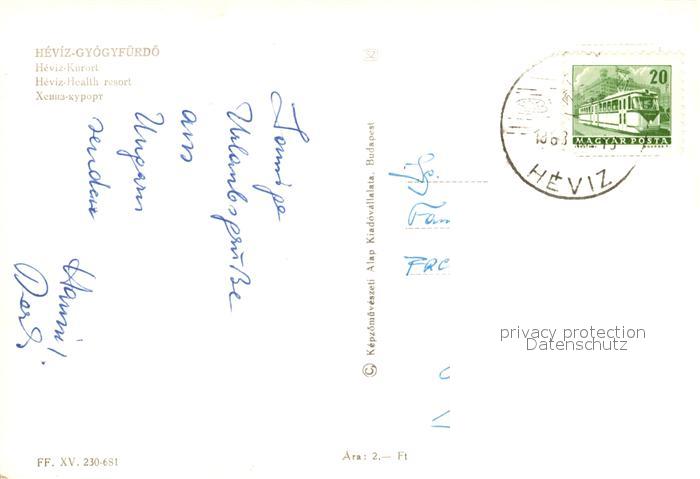 HÉVÍZ-GYÓGYFÜRDŐ
Héviz-Kurort
Héviz-Health resort
Хевиз-курорт
Sonnige
Urlaubsgrüße
aus
Ungarn
senden
Hanni
© Képzőművészeti Alap Kiadóvállalata, Budapest
Fam
20
MAGYAR POSTA
HÉVIZ
privacy protection
Datenschutz
FF. XV. 230-681
Ára: 2,— Ft